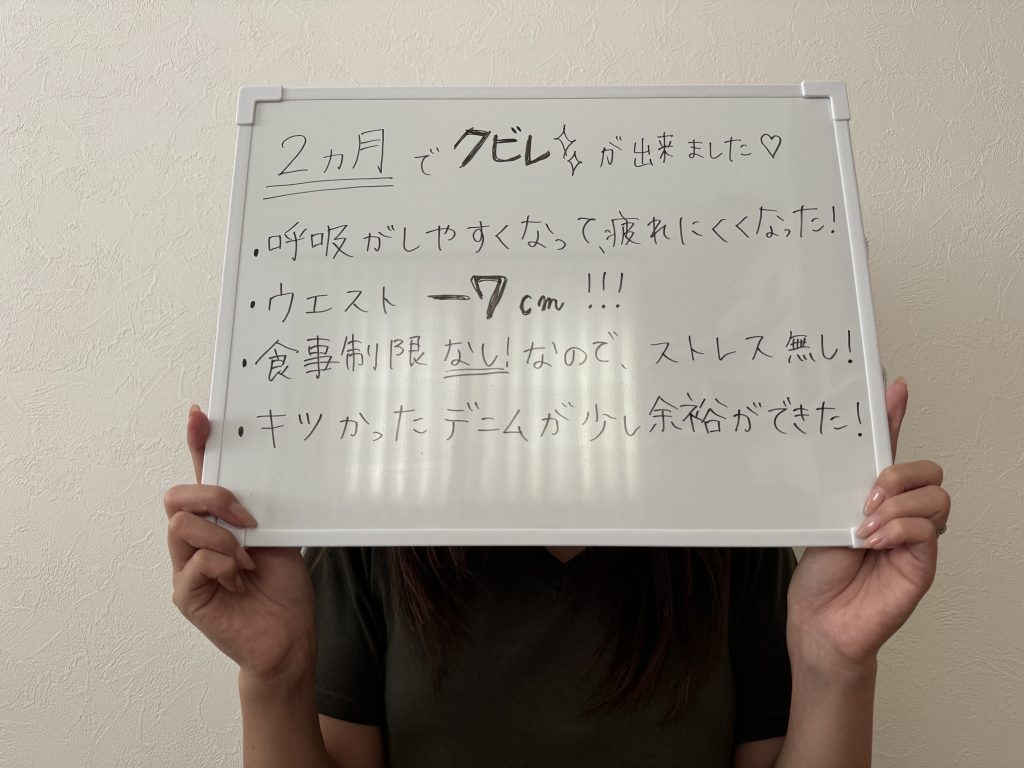 2ヵ月でクビレが出来ました♡
・呼吸がしやすくなって、疲れにくくなった!
・ウエスト -7cm !!!
・食事制限なし!なので、ストレス無し!
・キツかったデニムが少し余裕ができた!